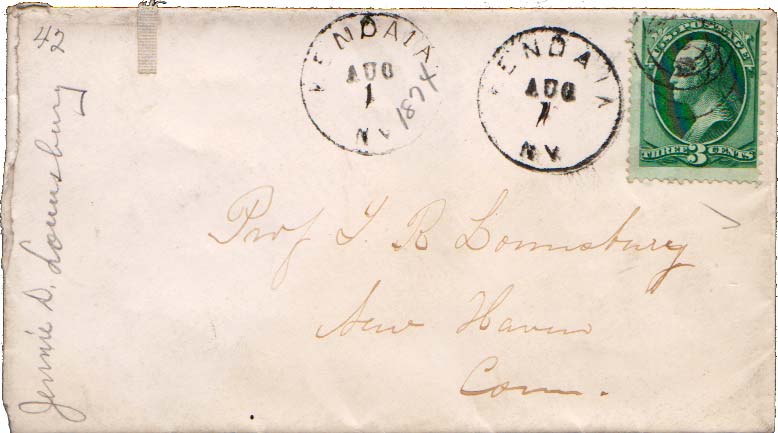 42
Jennie D. Lounsbury
KENDAIA
AUG
1
NY
1874
KENDAIA
AUG
1
NY
U.S. POSTAGE
THREE 3 CENTS
Prof T. R Lounsbury
New Haven
Conn.